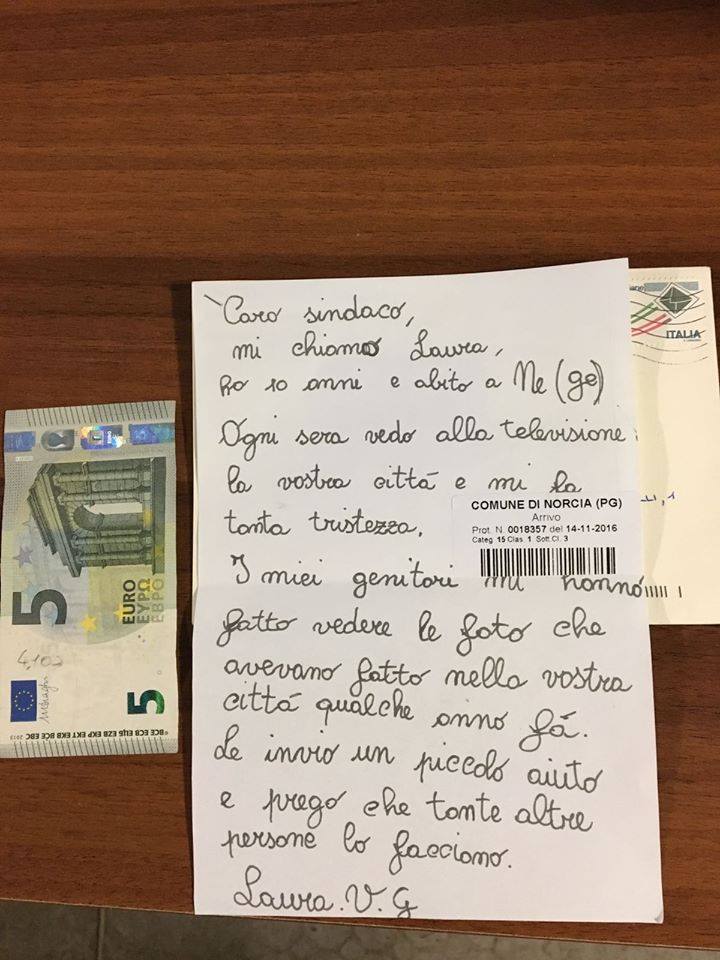 Caro sindaco,
mi chiamo Laura,
ho 10 anni e abito a Ne (ge)
Ogni sera vedo alla televisione
la vostra città e mi fa
tanta tristezza.
I miei genitori mi hanno
fatto vedere le foto che
avevano fatto nella vostra
città qualche anno fá.
Le invio un piccolo aiuto
e prego che tante altre
persone lo facciano.
Laura.V.G
COMUNE DI NORCIA (PG)
Arrivo
Prot. N. 0018357 del 14-11-2016
Categ. 15 Clas. 1 Sott.Cl. 3
ITALIA
5
EURO
ΕΥΡΩ
ЕВРО
5
©BCE ECB ЕЦБ EZB EKP EKT EKB BCE EBC 2013